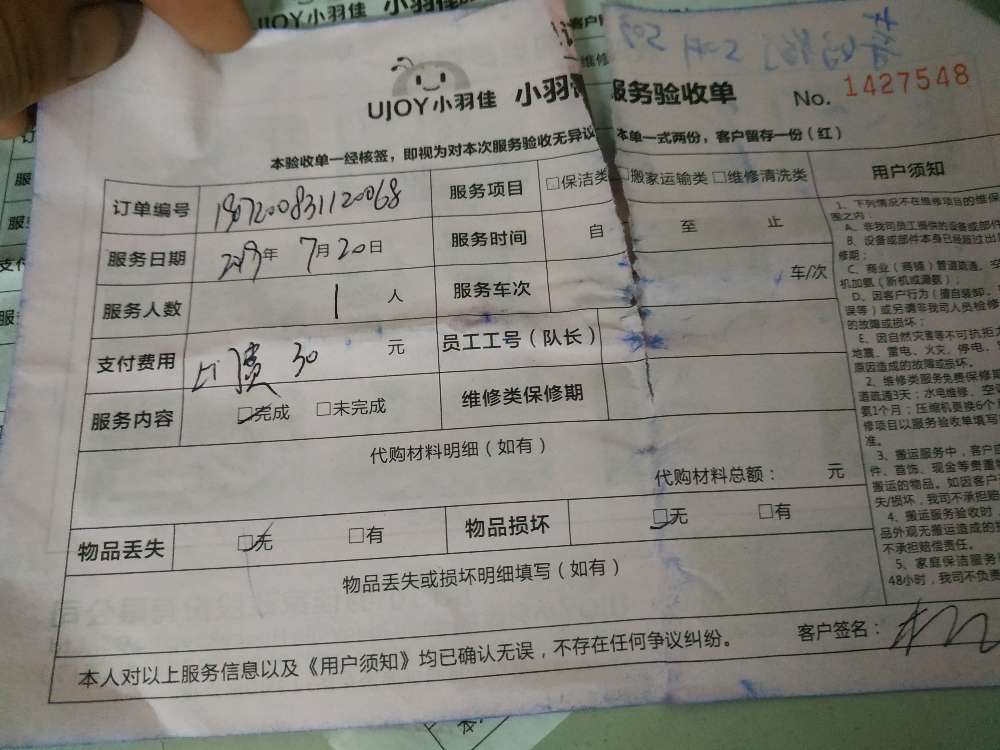 UJOY小羽佳 小羽 服务验收单 No. 1427548
本验收单一经核签，即视为对本次服务验收无异议 本单一式两份，客户留存一份（红）
订单编号 1907200831120068 服务项目 □保洁类 □搬家运输类 □维修清洗类
服务日期 2019年 7月20日 服务时间 自 至 止
服务人数 1 人 服务车次 车/次
支付费用 上门费 30 元 员工工号（队长）
服务内容 □完成 □未完成 维修类保修期
代购材料明细（如有）
代购材料总额： 元
物品丢失 □无 □有 物品损坏 □无 □有
物品丢失或损坏明细填写（如有）
本人对以上服务信息以及《用户须知》均已确认无误，不存在任何争议纠纷。 客户签名：
用户须知
1、下列情况不在维修项目的维保
围之内：
A、非我司员工提供的设备或部件
B、设备或部件本身已经超过出
修期；
C、商业（商铺）管道疏通、空
机加氨（新机或漏氨）；
D、因客户行为（擅自装卸、
误等）或另请非我司人员检修
的故障或损坏；
E、因自然灾害等不可抗拒
地震、雷电、火灾、停电、
原因造成的故障或损坏。
2、维修类服务免费保修期
道疏通3天；水电维修、空
氨1个月；压缩机更换6个
修项目以服务验收单填写
准。
3、搬运服务中，客户
件、首饰、现金等贵重
搬运的物品。如因客户
失/损坏，我司不承担赔
4、搬运服务验收时
品外观无搬运造成的
不承担赔偿责任。
5、家庭保洁服务
48小时，我司不负责